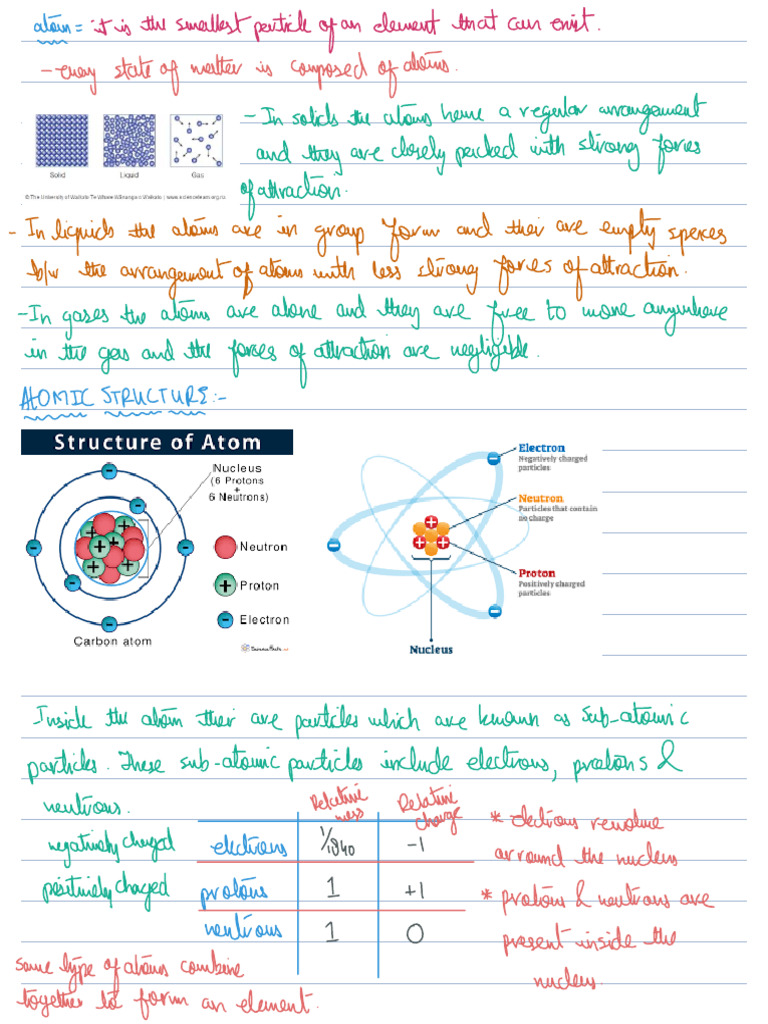 atom = it is the smallest particle of an element that can exist.
- every state of matter is composed of atoms.
Solid Liquid Gas
- In solids the atoms have a regular arrangement
and they are closely packed with strong forces
of attraction.
- In liquids the atoms are in group form and their are empty spaces
b/w the arrangement of atoms with less strong forces of attraction.
- In gases the atoms are alone and they are free to move anywhere
in the gas and the forces of attraction are negligible.
ATOMIC STRUCTURE:-
Structure of Atom
Nucleus
(6 Protons
+
6 Neutrons)
Neutron
Proton
Electron
Carbon atom
Electron
Negatively charged
particles
Neutron
Particles that contain
no charge
Proton
Positively charged
particles
Nucleus
Inside the atom their are particles which are known as sub-atomic
particles. These sub-atomic particles include electrons, protons &
neutrons.
Relative mass
Relative charge
negatively charged
electrons 1/1840 -1
positively charged
protons 1 +1
neutrons 1 0
* electrons revolve
arround the nucleus
* protons & neutrons are
present inside the
nucleus.
same type of atoms combine
together to form an element.